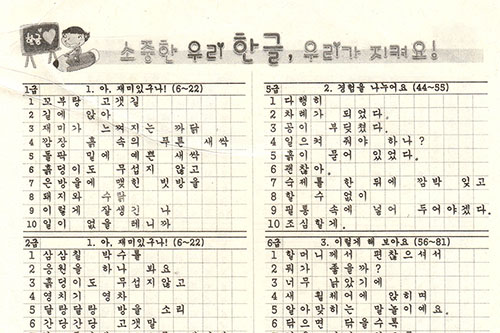 한글
소중한 우리 한글, 우리가 지켜요!
1급 1. 아, 재미있구나! (6~22)
1 꼬부랑 고갯길
2 길에 앉아
3 재미가 느껴지는 까닭
4 깜장 흙 속의 푸른 새싹
5 돌팍 밑에 예쁜 새싹
6 흙덩이도 무섭지 않고
7 은방울에 맺힌 빗방울
8 돼지와 수탉
9 이렇게 잘생긴 나
10 일이 없을 테니까
2급 1. 아, 재미있구나! (6~22)
1 삼삼칠 박수를
2 응원을 하나 봐요
3 흙덩이도 무섭지 않고
4 영치기 영차
5 달랑달랑 방울 소리
6 간당간당
5급 2. 경험을 나누어요 (44~55)
1 다행히
2 차례가 되었다.
3 공이 부딪쳤다.
4 일으켜 줘야 하나?
5 흙이 묻어 있었다.
6 괜찮아.
7 숙제를 한 뒤에 깜박 잊고
8 할 수 없이
9 필통 속에 넣어 두어야겠다.
10 조심할게.
6급 3. 이렇게 해 보아요 (56~81)
1 할머니께서 편찮으셔서
2 뭐가 좋을까?
3 너무 낡았기에
4 새 휠체어에 앉히며
5 알아맞히는 말놀이예요.
6 닦으면 닦을수록